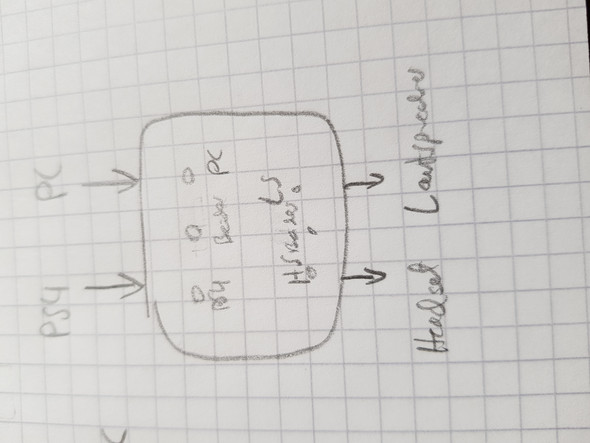 PS4 PC
PS4 Beides PC
HS Beides LS
Headset Lautsprecher